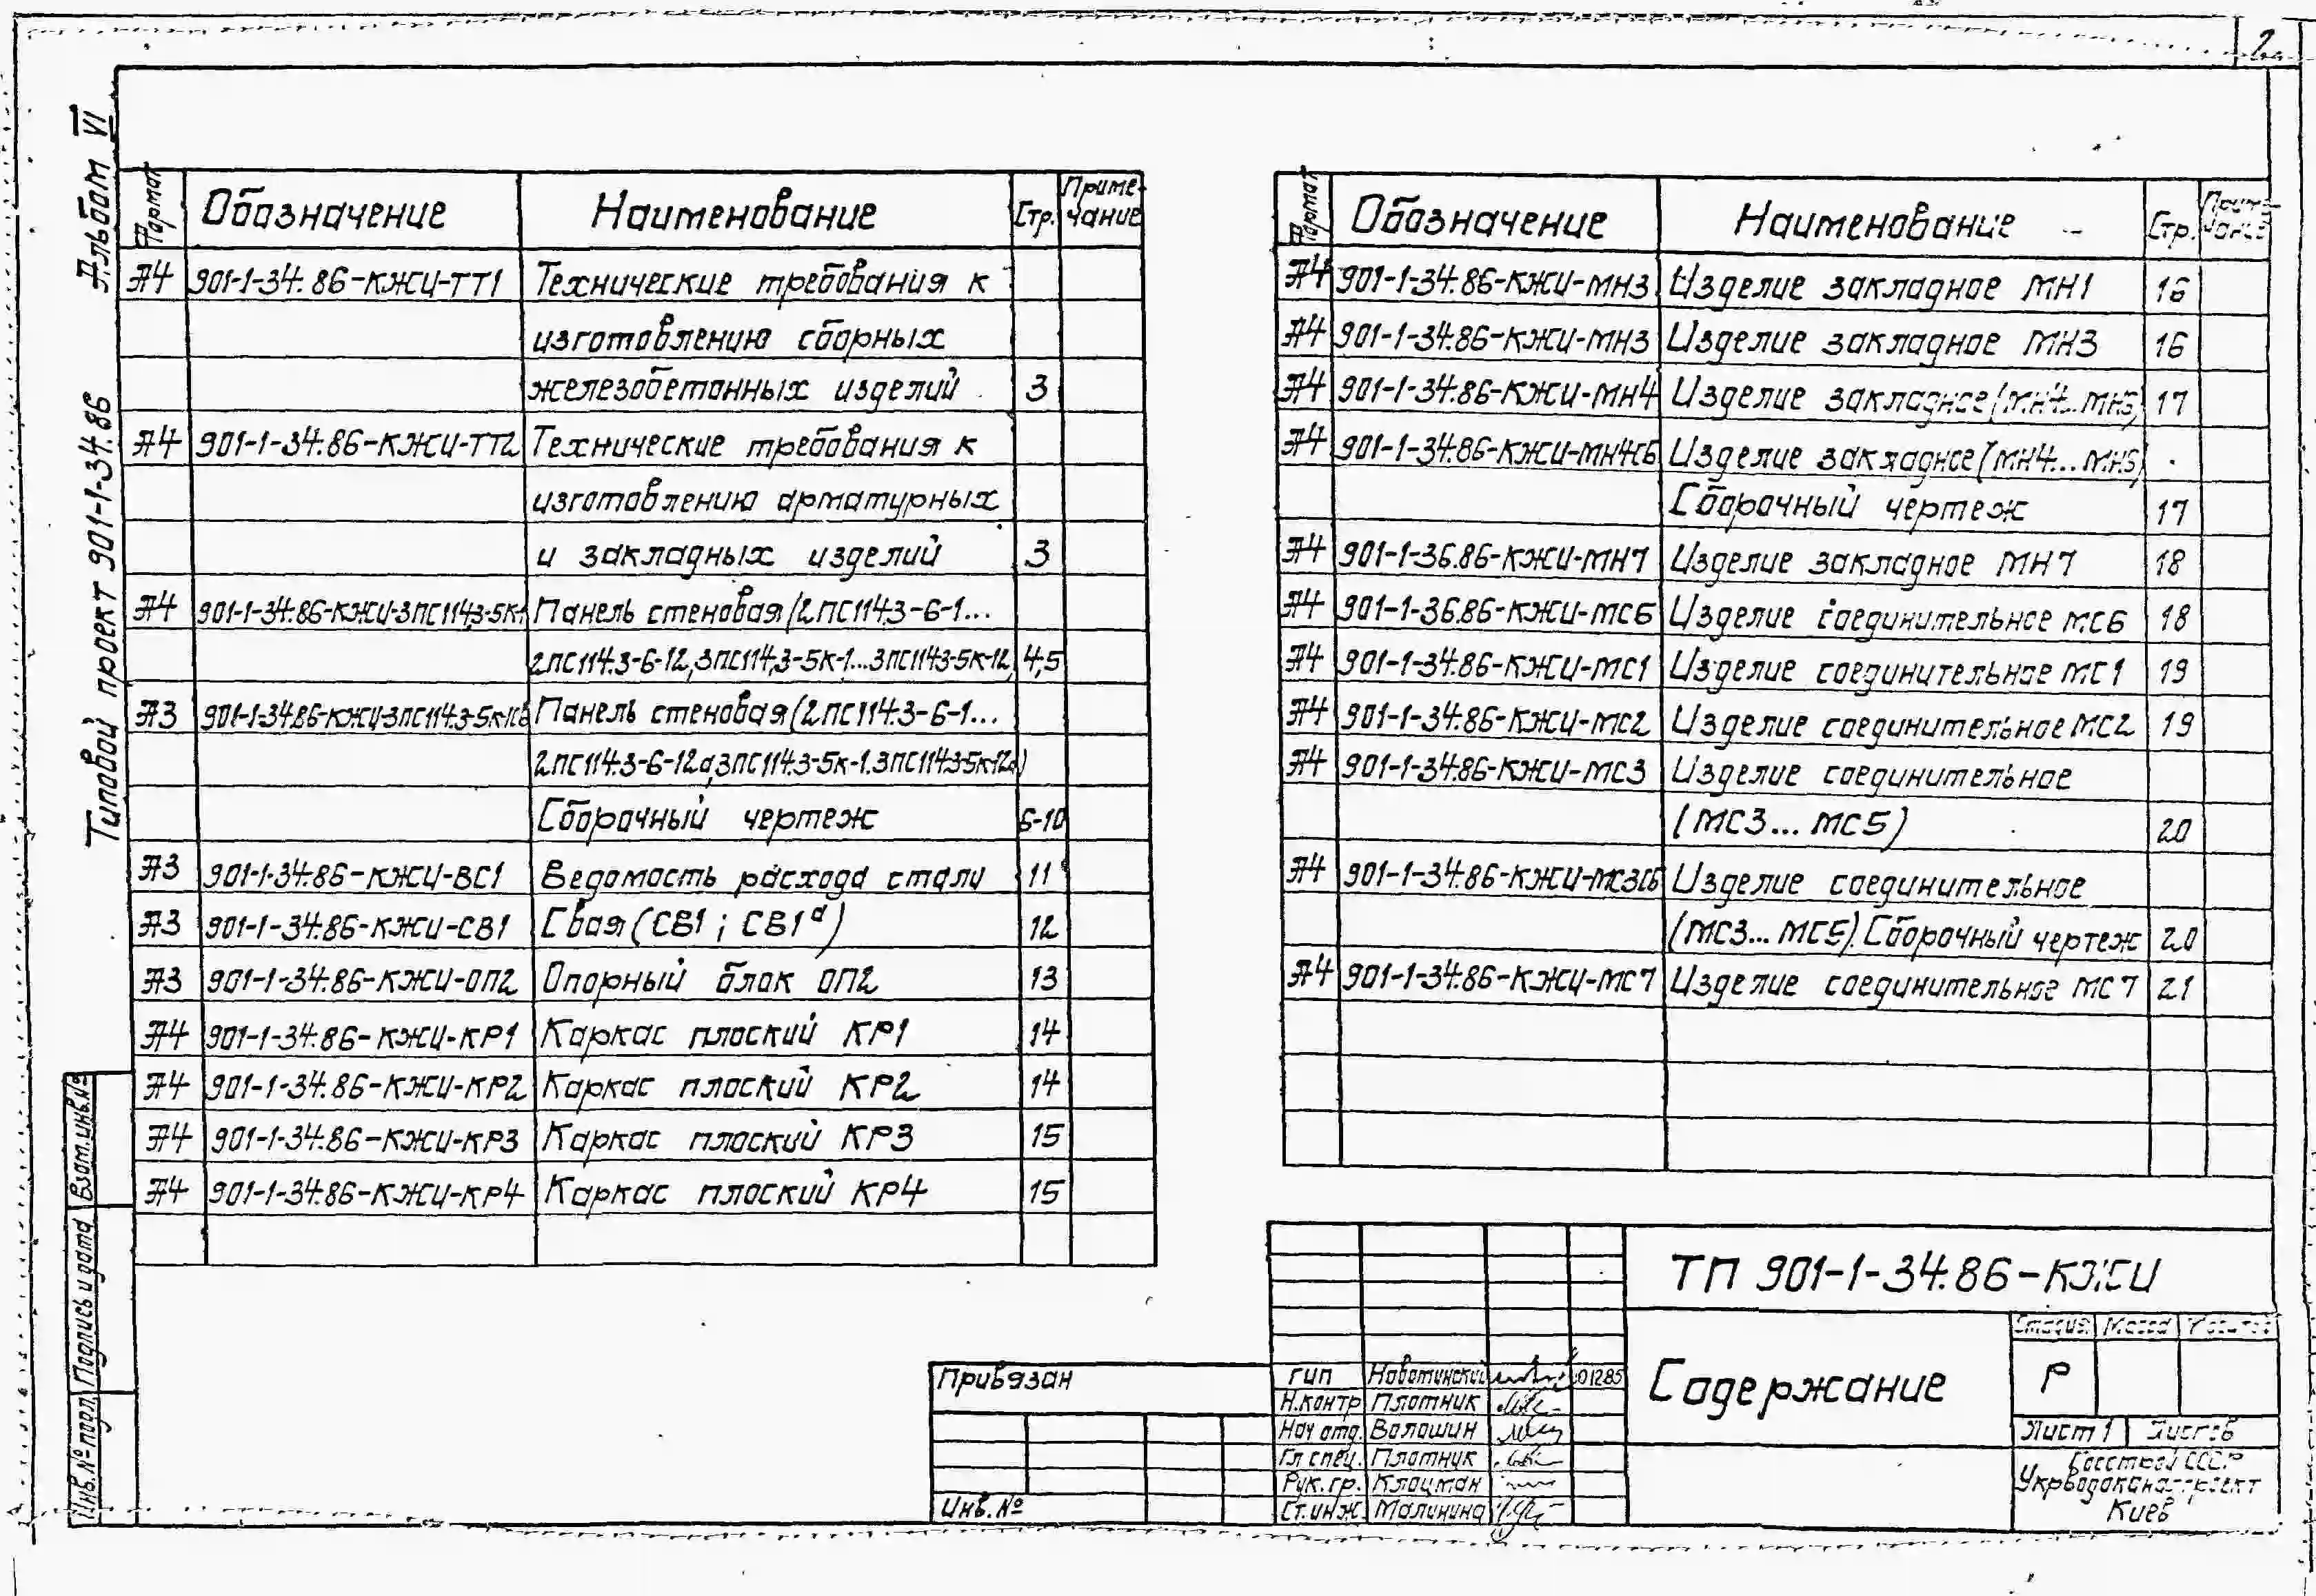 2
Альбом VI
Типовой проект 901-1-34.86
Формат Обозначение Наименование Стр. Приме-
чание
А4 901-1-34.86-КЖИ-ТТ1 Технические требования к
изготовлению сборных
железобетонных изделий 3
А4 901-1-34.86-КЖИ-ТТ2 Технические требования к
изготовлению арматурных
и закладных изделий 3
А4 901-1-34.86-КЖИ-3ПС114.3-5К-1 Панель стеновая (2ПС114.3-6-1...
2ПС114.3-6-12, 3ПС114,3-5К-1...3ПС114.3-5К-12, 4,5
А3 901-1-34.86-КЖИ-3ПС114.3-5К-1СБ Панель стеновая (2ПС114.3-6-1...
2ПС114.3-6-12а,3ПС114.3-5К-1.3ПС114.3-5К-12а)
Сборочный чертеж 6-10
А3 901-1-34.86-КЖИ-ВС1 Ведомость расхода стали 11
А3 901-1-34.86-КЖИ-СВ1 Свая (СВ1; СВ1а) 12
А3 901-1-34.86-КЖИ-ОП2 Опорный блок ОП2 13
А4 901-1-34.86-КЖИ-КР1 Каркас плоский КР1 14
А4 901-1-34.86-КЖИ-КР2 Каркас плоский КР2 14
А4 901-1-34.86-КЖИ-КР3 Каркас плоский КР3 15
А4 901-1-34.86-КЖИ-КР4 Каркас плоский КР4 15
Формат Обозначение Наименование Стр. Приме-
чание
А4 901-1-34.86-КЖИ-МН3 Изделие закладное МН1 16
А4 901-1-34.86-КЖИ-МН3 Изделие закладное МН3 16
А4 901-1-34.86-КЖИ-МН4 Изделие закладное (МН4...МН5) 17
А4 901-1-34.86-КЖИ-МН4СБ Изделие закладное (МН4...МН5)
Сборочный чертеж 17
А4 901-1-36.86-КЖИ-МН7 Изделие закладное МН7 18
А4 901-1-36.86-КЖИ-МС6 Изделие соединительное МС6 18
А4 901-1-34.86-КЖИ-МС1 Изделие соединительное МС1 19
А4 901-1-34.86-КЖИ-МС2 Изделие соединительное МС2 19
А4 901-1-34.86-КЖИ-МС3 Изделие соединительное
(МС3...МС5) 20
А4 901-1-34.86-КЖИ-МС3СБ Изделие соединительное
(МС3...МС5). Сборочный чертеж 20
А4 901-1-34.86-КЖИ-МС7 Изделие соединительное МС7 21
Взам.инв.№
Подпись и дата
Инв.№ подл.
Привязан
Инв.№
ГИП Новотинский 01285
Н.контр Плотник
Нач отд. Волошин
Гл спец. Плотник
Рук.гр. Клоцман
Ст.инж. Малинина
ТП 901-1-34.86-КЖИ
Содержание
Стадия Масса Масштаб
Р
Лист 1 Листов
Госстрой СССР
Укрводоканалпроект
Киев